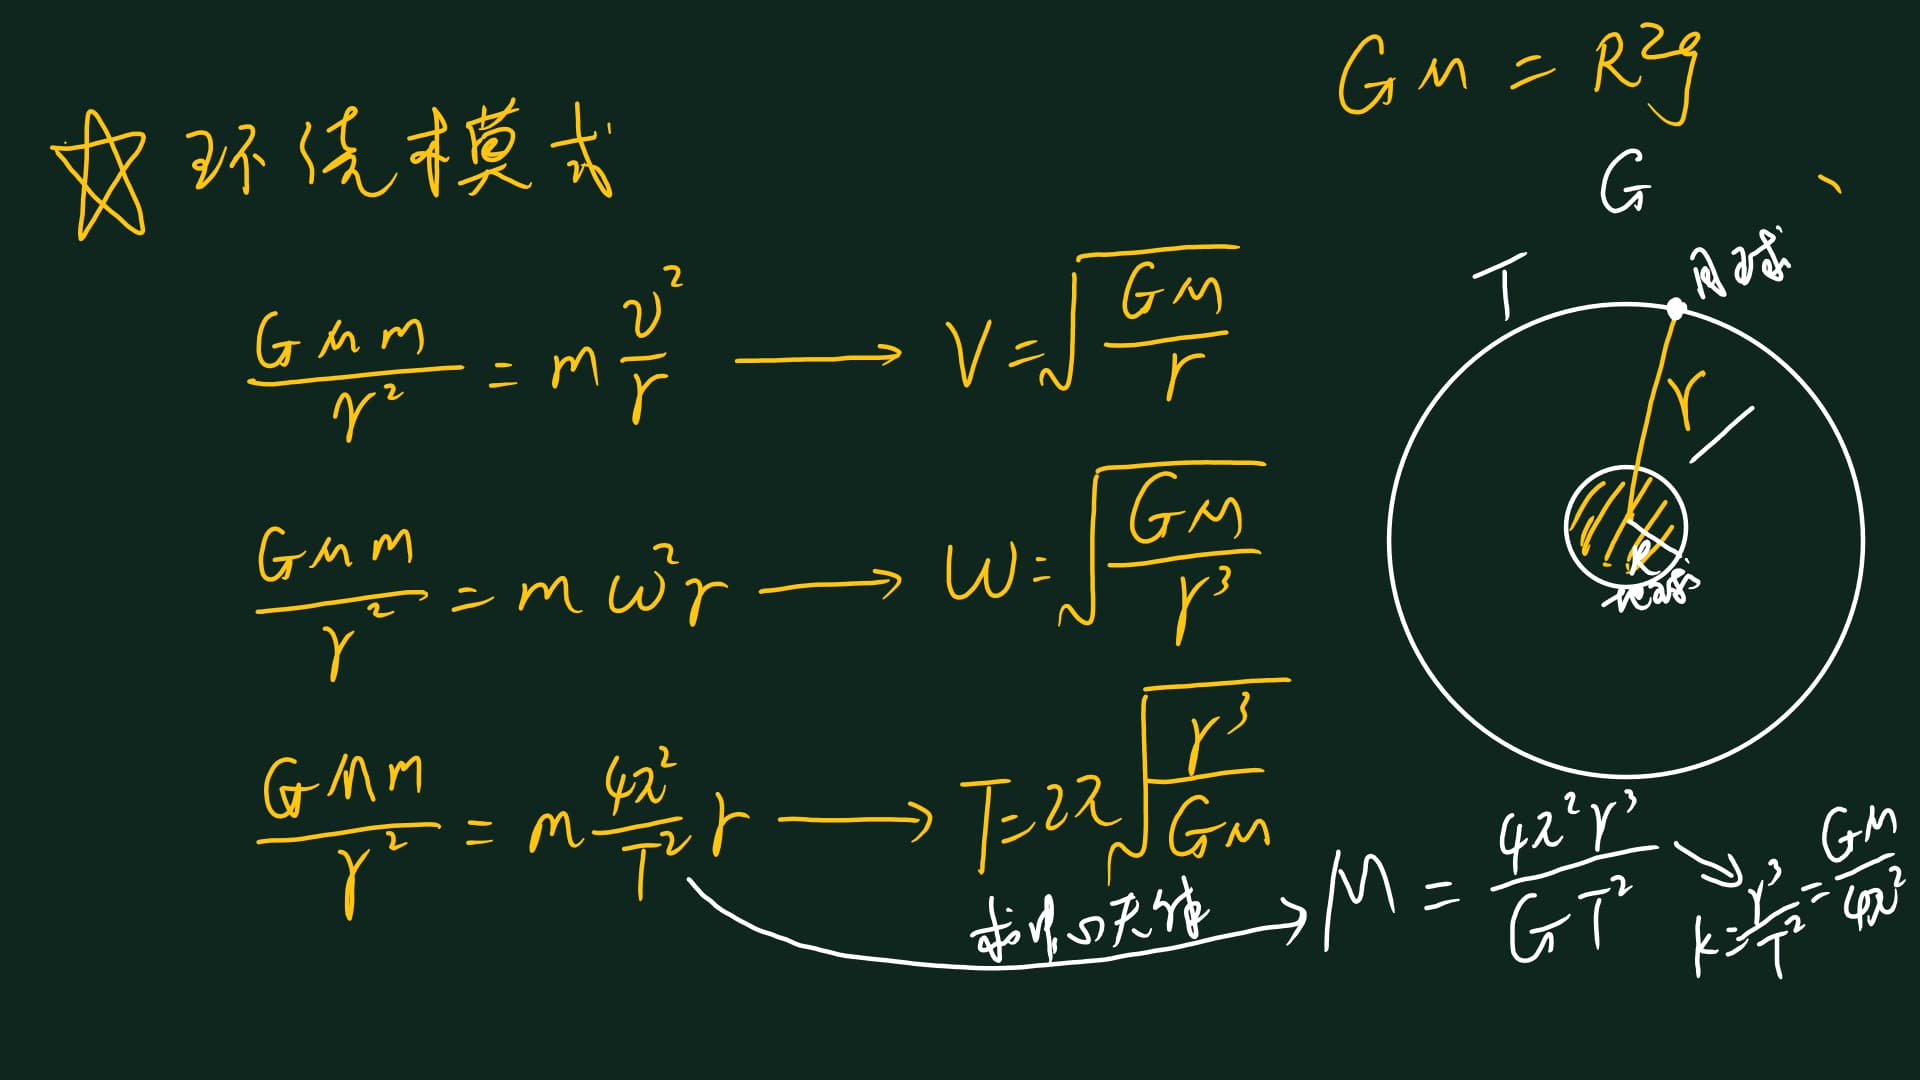 GM = R²g
☆ 环绕模式
G
T
月球
GMm/r² = m v²/r → V = √(GM/r)
r
GMm/r² = m ω² r → ω = √(GM/r³)
R
地球
GMm/r² = m 4π²/T² r → T = 2π √(r³/GM)
求中心天体 → M = 4π²r³/GT² → k = r³/T² = GM/4π²